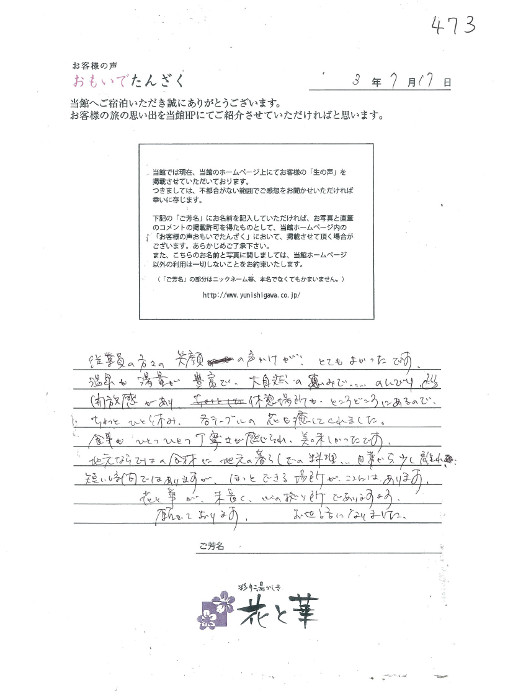 473
お客様の声
おもいでたんざく
3 年 7 月 17 日
当館へご宿泊いただき誠にありがとうございます。
お客様の旅の思い出を当館HPにてご紹介させていただければと思います。
当館では現在、当館のホームページ上にてお客様の「生の声」を
掲載させていただいております。
つきましては、不都合がない範囲でご感想をお聞かせいただければ
幸いに存じます。
下記の「ご芳名」にお名前を記入していただければ、お写真と直筆
のコメントの掲載許可を得たものとして、当館ホームページ内の
「お客様の声おもいでたんざく」において、掲載させて頂く場合が
ございます。あらかじめご了承下さい。
また、こちらのお名前と写真に関しましては、当館ホームページ
以外の利用は一切しないことをお約束いたします。
（「ご芳名」の部分はニックネーム等、本名でなくてもかまいません。）
http://www.yunishigawa.co.jp/
従業員の方々の 笑顔 の声かけが! とてもよかったです。
温泉も 湯量が 豊富で、大自然の 恵みで..... のんびり
開放感があり 休憩場所が ところどころにあるので、
ちょっと ひと休み、各テーブルの 花も癒してくれました。
食事も ひとつひとつ 丁寧さが感じられ、美味しかったです。
地元ならではの食材に 地元の暮らしでの料理... 日常から 少し 離れ
短い時間ではありますが、ほっと できる 場所が、ここには、あります。
花と華が、末長く、心の拠り所でありますよう
願っております。 お世話になりました。
ご芳名
彩り湯かしき
花と華